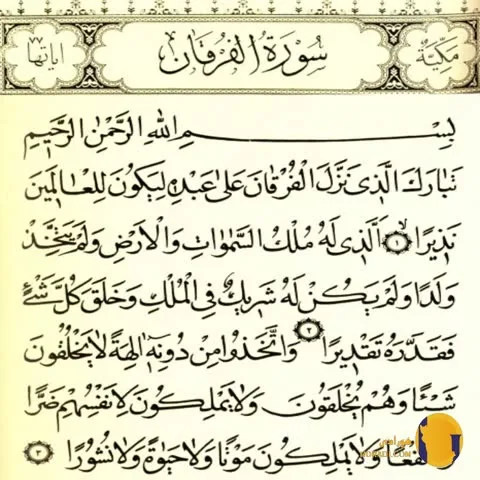 مَكِّيَّةٌ سُورَةُ الْفُرْقَانِ اٰيَاتُهَا ٧٧
بِسْمِ اللّٰهِ الرَّحْمٰنِ الرَّحِيمِ
تَبَارَكَ الَّذِى نَزَّلَ الْفُرْقَانَ عَلٰى عَبْدِهِ لِيَكُونَ لِلْعَالَمِينَ
نَذِيرًا ١ اَلَّذِى لَهُ مُلْكُ السَّمٰوَاتِ وَالْاَرْضِ وَلَمْ يَتَّخِذْ
وَلَدًا وَلَمْ يَكُنْ لَهُ شَرِيكٌ فِى الْمُلْكِ وَخَلَقَ كُلَّ شَىْءٍ
فَقَدَّرَهُ تَقْدِيرًا ٢ وَاتَّخَذُوا مِنْ دُونِهِ اٰلِهَةً لَا يَخْلُقُونَ
شَيْئًا وَهُمْ يُخْلَقُونَ وَلَا يَمْلِكُونَ لِاَنْفُسِهِمْ ضَرًّا
وَلَا يَمْلِكُونَ مَوْتًا وَلَا حَيٰوةً وَلَا نُشُورًا ٣